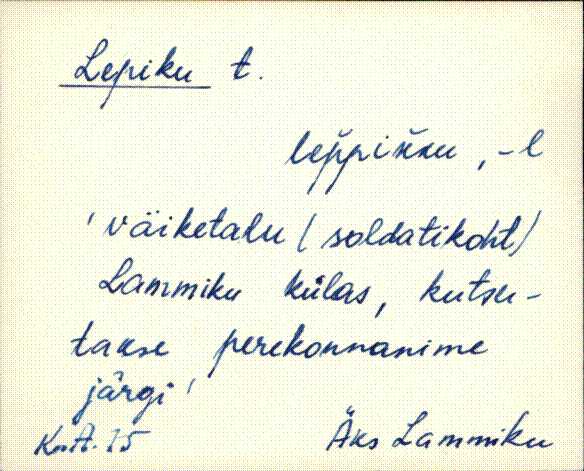 Lepiku t.
lep̆pik̆ku, -l
'väiketalu (soldatikoht)
Lammiku külas, kutsu-
takse perekonnanime
järgi'
Äks Lammiku